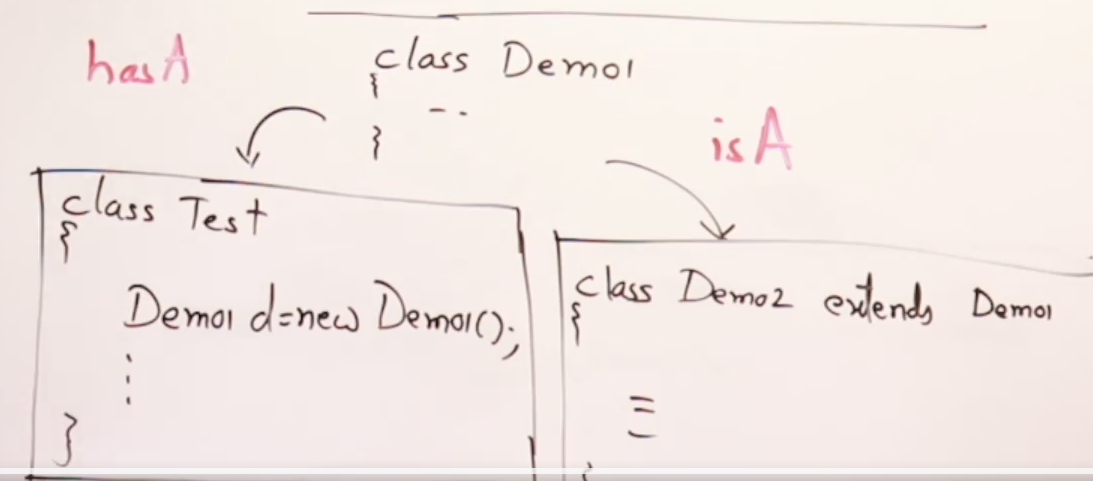 hasA
class Demo1
{
--
}
isA
class Test
{
Demo1 d=new Demo1();
}
class Demo2 extends Demo1
{
}